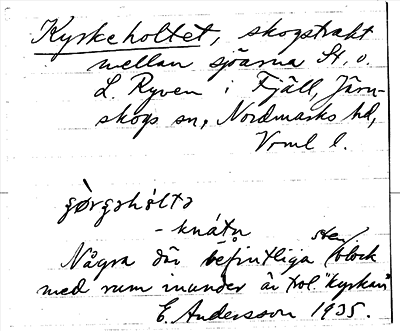 Kyrkeholtet, skogstrakt
mellan sjöarna St. o.
L. Ryven i Fjäll, Järn-
skogs sn, Nordmarks hd,
Vrml l.
- knátn
Några där befintliga sten/block
med rum inunder är trol. "kyrkan"
E. Andersson 1935.